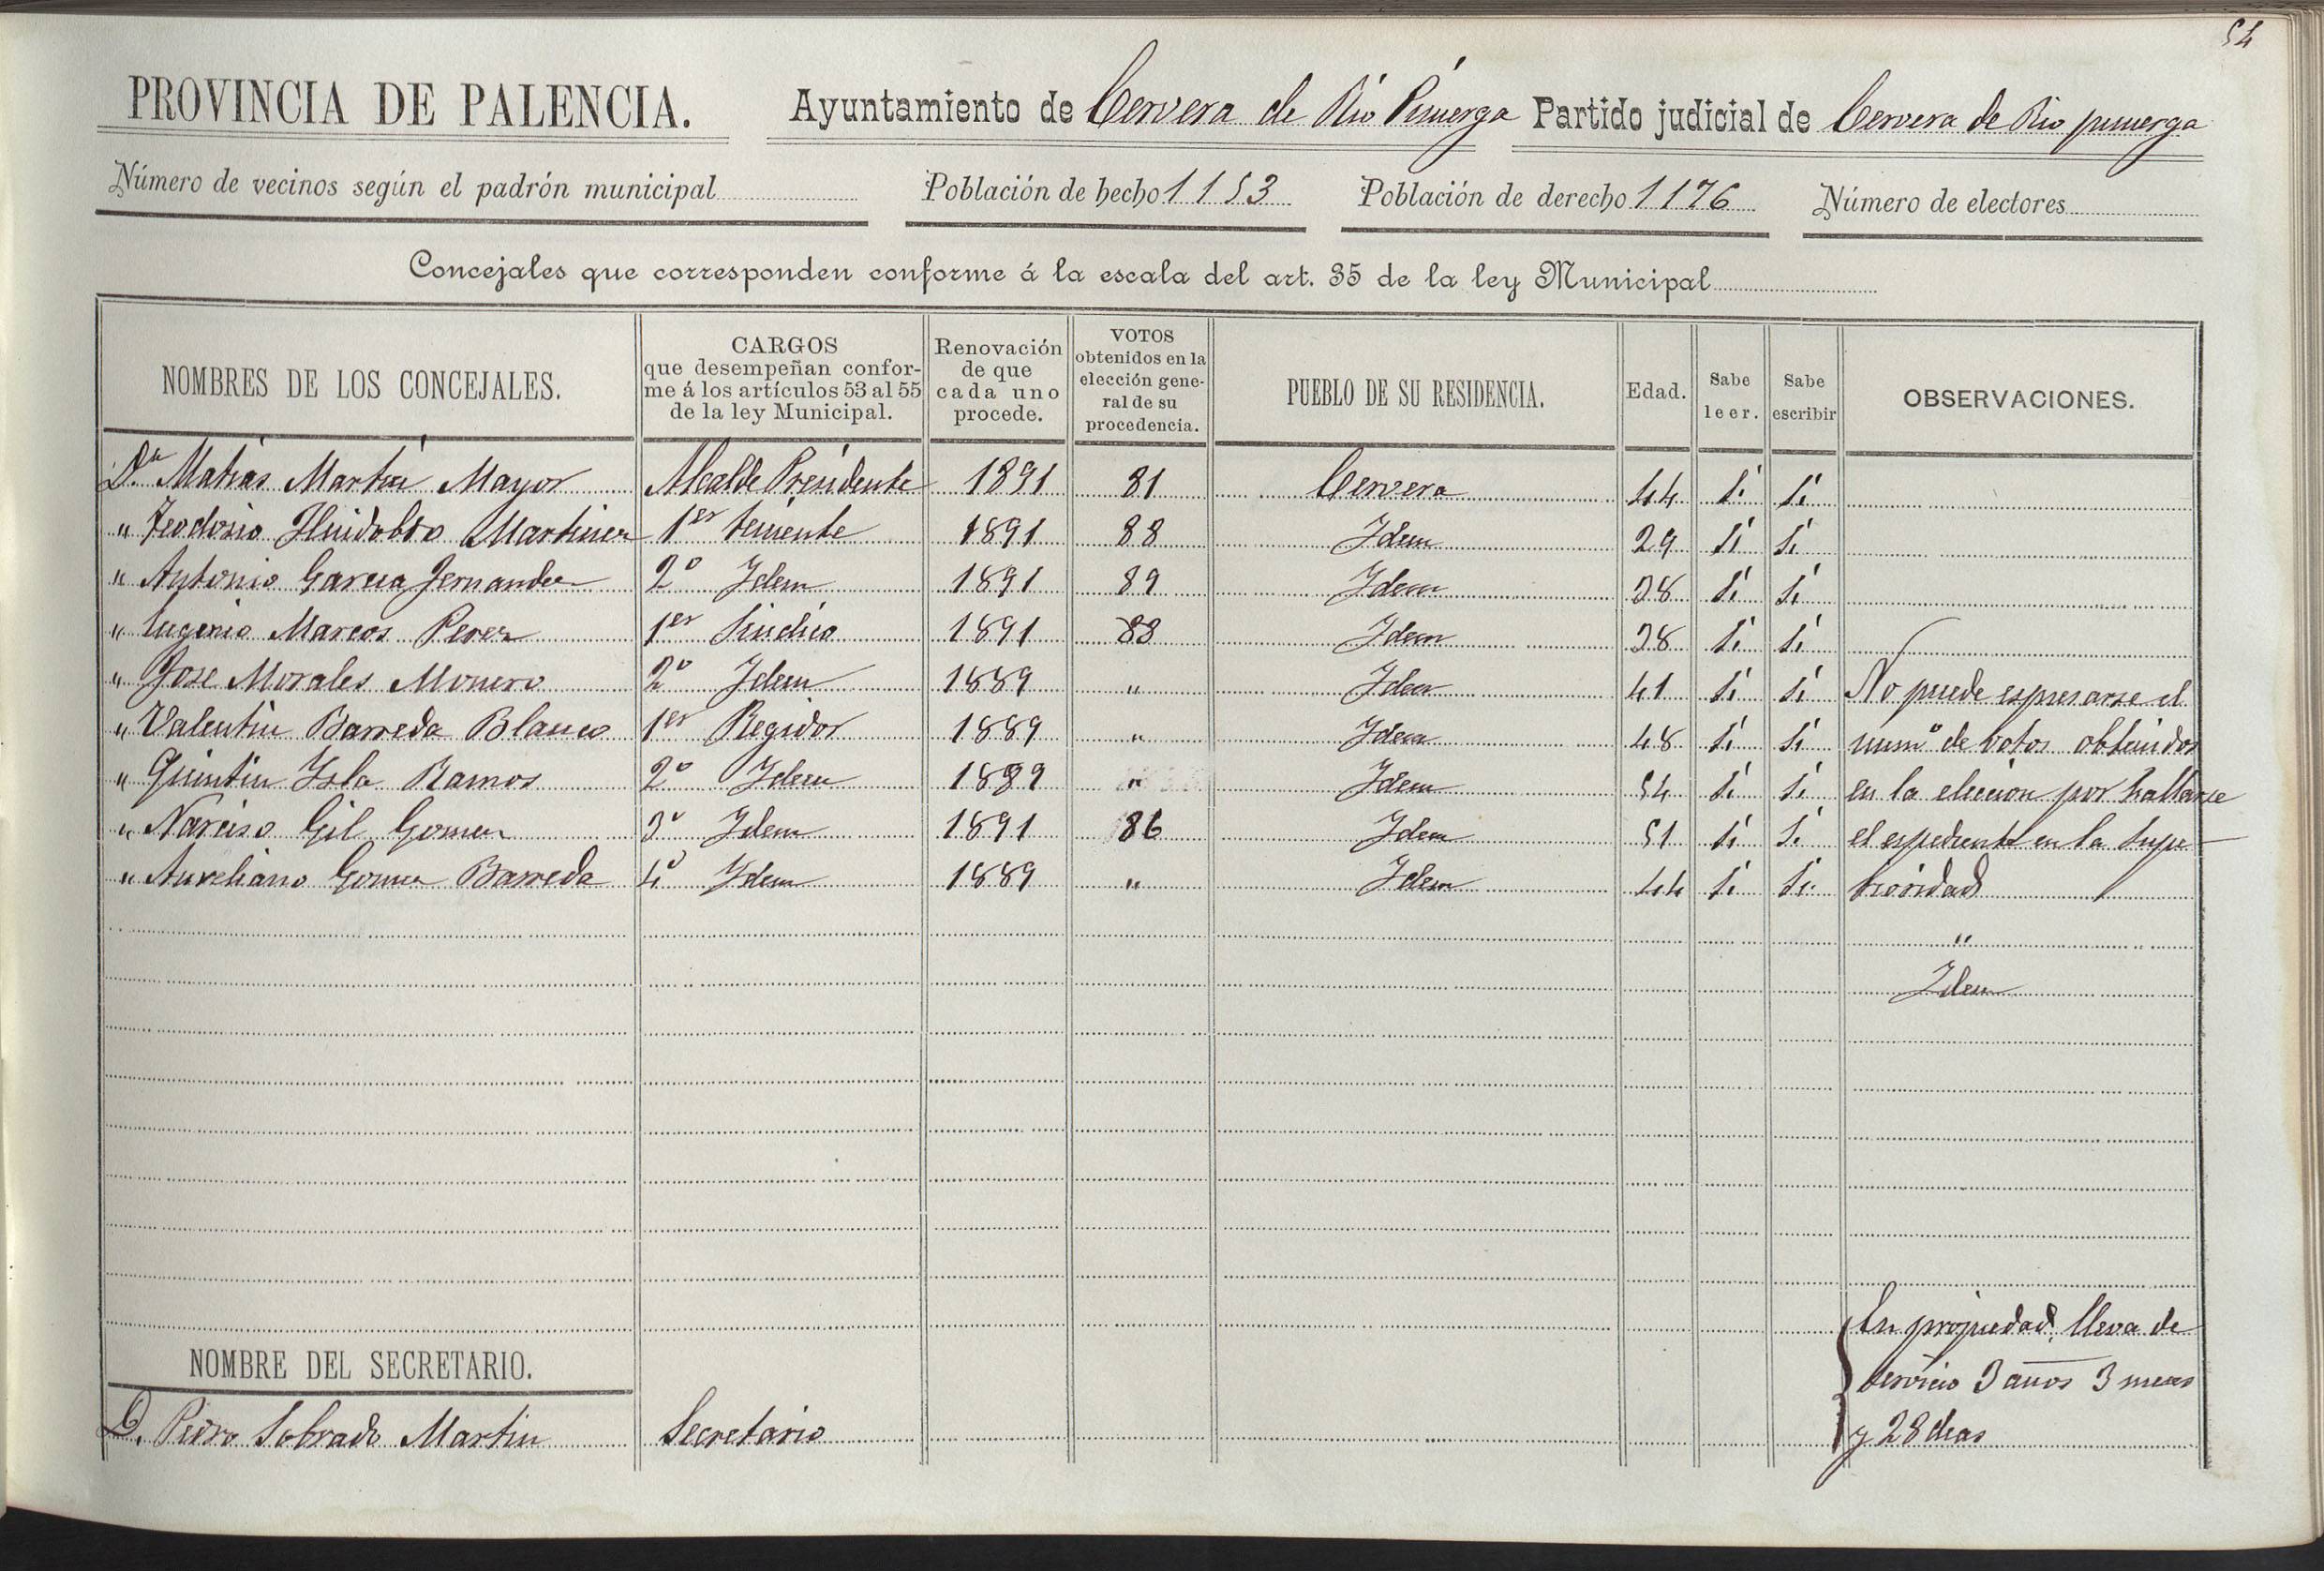 54
PROVINCIA DE PALENCIA. Ayuntamiento de Cervera de Río Pisuerga Partido judicial de Cervera de Rio pisuerga
Número de vecinos según el padrón municipal Población de hecho 1153 Población de derecho 1176 Número de electores
Concejales que corresponden conforme á la escala del art. 35 de la ley Municipal
NOMBRES DE LOS CONCEJALES. CARGOS que desempeñan confor- me á los artículos 53 al 55 de la ley Municipal. Renovación de que cada uno procede. VOTOS obtenidos en la elección gene- ral de su procedencia. PUEBLO DE SU RESIDENCIA. Edad. Sabe leer. Sabe escribir OBSERVACIONES.
Dn Matias Martin Mayor Alcalde Presidente 1891 81 Cervera 44 Si Si
" Teodosio Huidobro Martinez 1er teniente 1891 88 Idem 29 Si Si
" Antonio Garcia Fernandez 2º Idem 1891 89 Idem 38 Si Si
" Eugenio Marcos Perez 1er Sindico 1891 88 Idem 38 Si Si
" Jose Morales Monero 2º Idem 1889 " Idem 41 Si Si No puede espresarse el
" Valentin Barreda Blanco 1er Regidor 1889 " Idem 48 Si Si numº de votos obtenidos
" Quintin Isla Ramos 2º Idem 1889 " Idem 54 Si Si en la elección por hallarse
" Narciso Gil Gomez 3º Idem 1891 86 Idem 51 Si Si el espediente en la Supe-
" Aureliano Gomez Barreda 4º Idem 1889 " Idem 44 Si Si rioridad
"
Idem
En propiedad, lleva de
NOMBRE DEL SECRETARIO. servicio 3 años 3 meses
D. Pedro Sobrado Martin Secretario y 28 dias